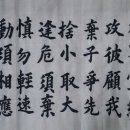 攻彼顧我
棄子爭先
捨小取大
逢危須棄
慎勿輕速
動須相應